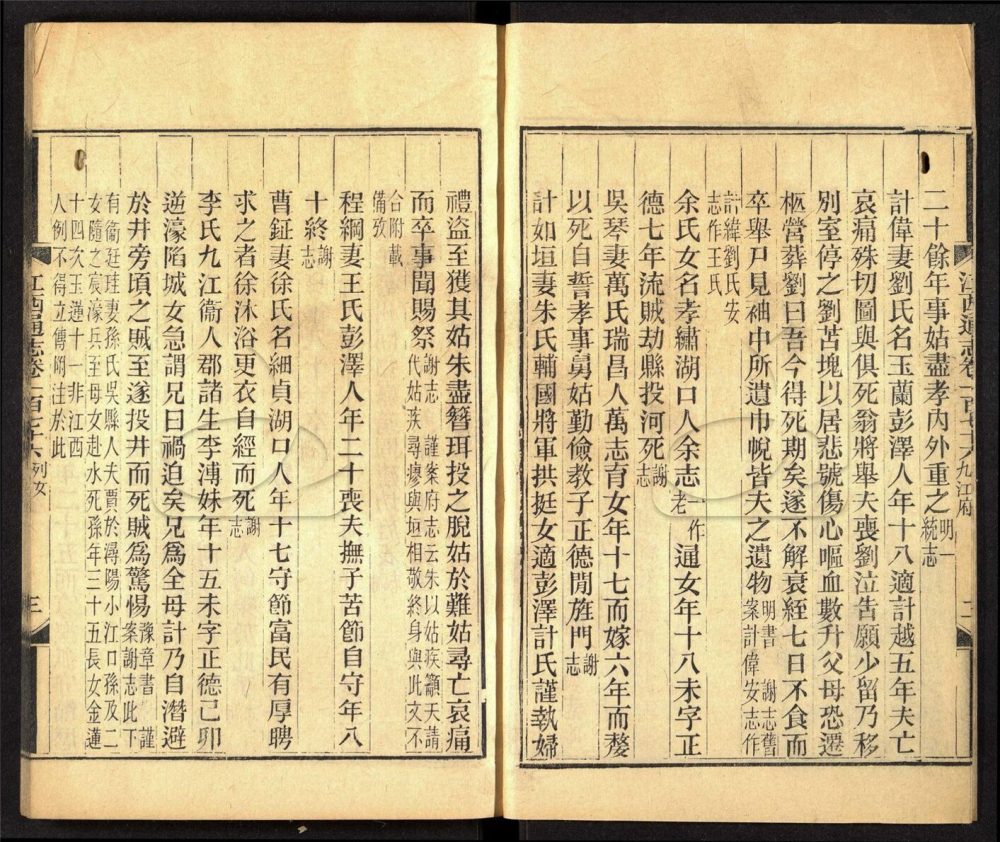 二十餘年事姑盡孝內外重之明一統志
計偉妻劉氏名玉蘭彭澤人年十八適計越五年夫亡
哀痛殊切圖與俱死翁將舉夫喪劉泣告願少留乃移
別室停之劉苫塊以居悲號傷心嘔血數升父母恐遷
柩營葬劉曰吾今得死期矣遂不解衰絰七日不食而
卒舉尸見袖中所遺巾帨皆夫之遺物明書 謝志舊
案計偉安志作
計緯劉氏安
志作王氏
余氏女名孝繡湖口人余志一作老通女年十八未字正
德七年流賊劫縣投河死謝志
吳琴妻萬氏瑞昌人萬志育女年十七而嫁六年而嫠
以死自誓孝事舅姑勤儉教子正德閒旌門謝志
計如垣妻朱氏輔國將軍拱挺女適彭澤計氏謹執婦
江西通志卷一百七十六九江府
二
禮盜至獲其姑朱盡簪珥投之脫姑於難姑尋亡哀痛
而卒事聞賜祭謝志 謹案府志云朱以姑疾籲天請
代姑疾尋瘳與垣相敬終身與此文不
合附載
備攷
程綱妻王氏彭澤人年二十喪夫撫子苦節自守年八
十終謝志
曹鉦妻徐氏名細貞湖口人年十七守節富民有厚聘
求之者徐沐浴更衣自經而死謝志
李氏九江衞人郡諸生李漙妹年十五未字正德己卯
逆濠陷城女急謂兄曰禍迫矣兄爲全母計乃自潛避
於井旁頃之賊至遂投井而死賊爲驚惕豫章書 謹
案謝志此下
有衞廷珪妻孫氏吳縣人夫賈於潯陽小江口孫及二
女隨之宸濠兵至母女赴水死孫年三十五長女金蓮
十四次玉蓮十一非江西
人例不得立傳附注於此
江西通志卷一百七十六列女
三